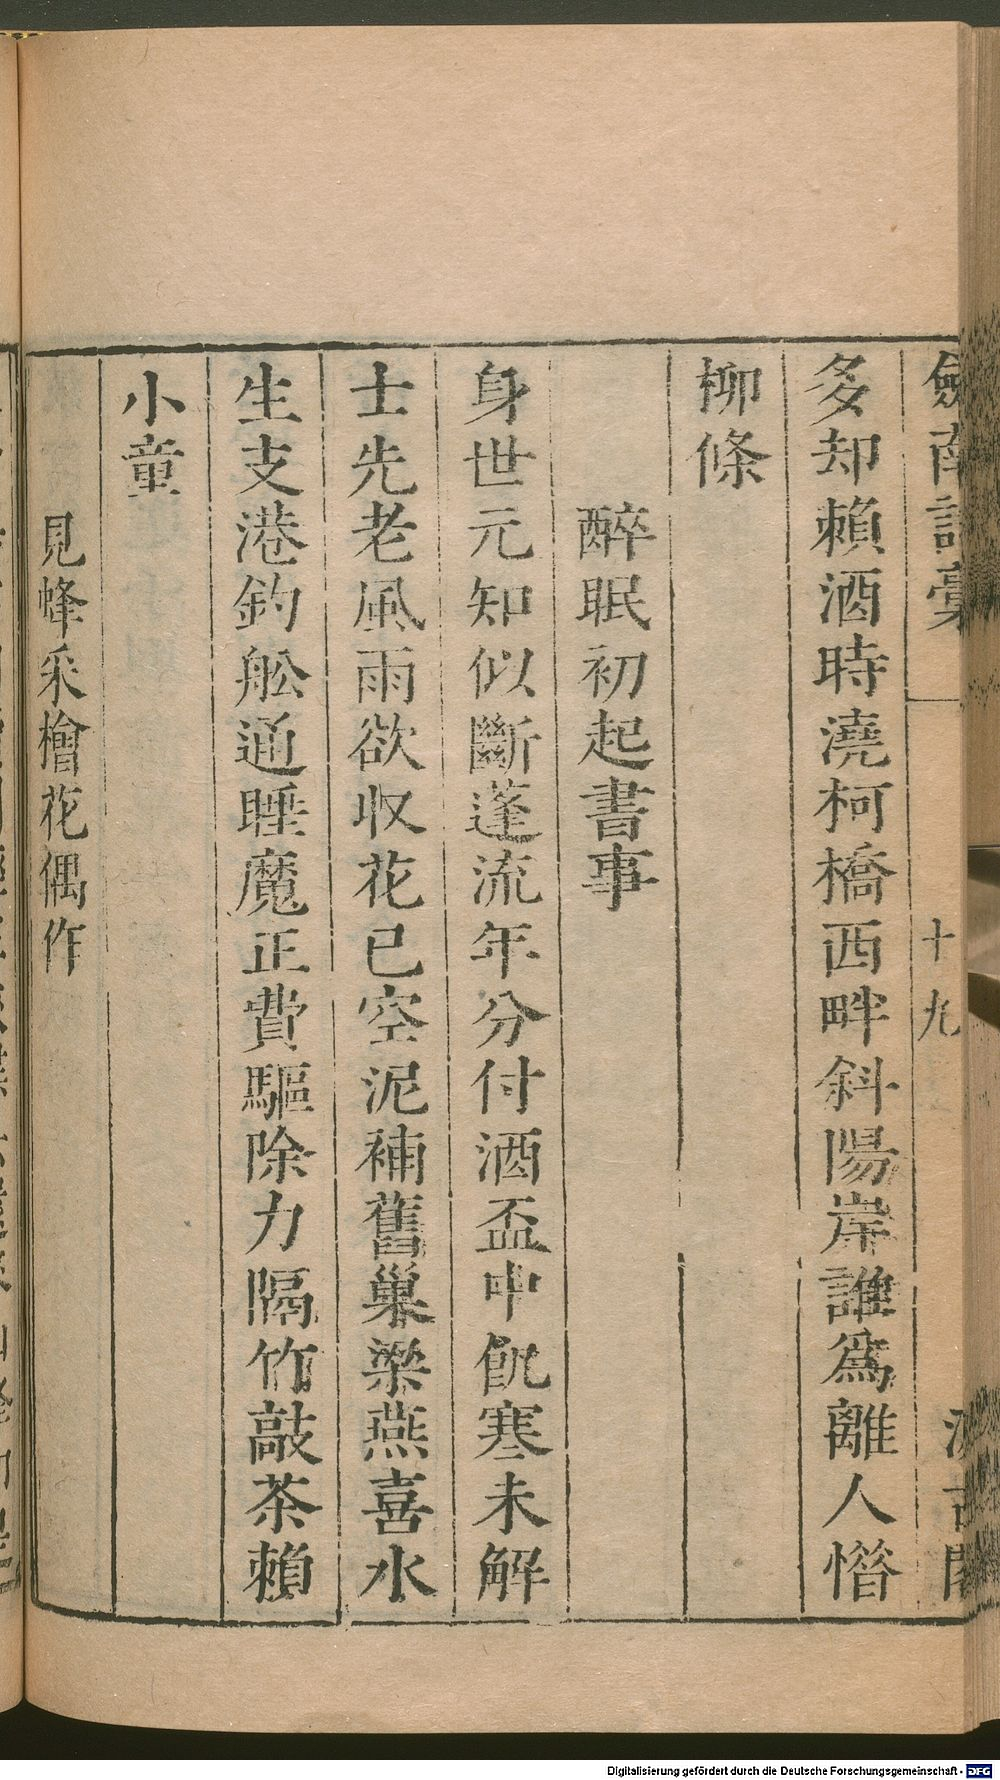 劍南詩稾 十九 汲古閣
多却賴酒時澆柯橋西畔斜陽岸誰爲離人㬱
柳條
醉眠初起書事
身世元知似斷蓬流年分付酒盃中飢寒未解
士先老風雨欲収花已空泥補舊巢梁燕喜水
生支港釣舩通睡魔正費驅除力隔竹敲茶賴
小童
見蜂采檜花偶作
Digitalisierung gefördert durch die Deutsche Forschungsgemeinschaft - DFG